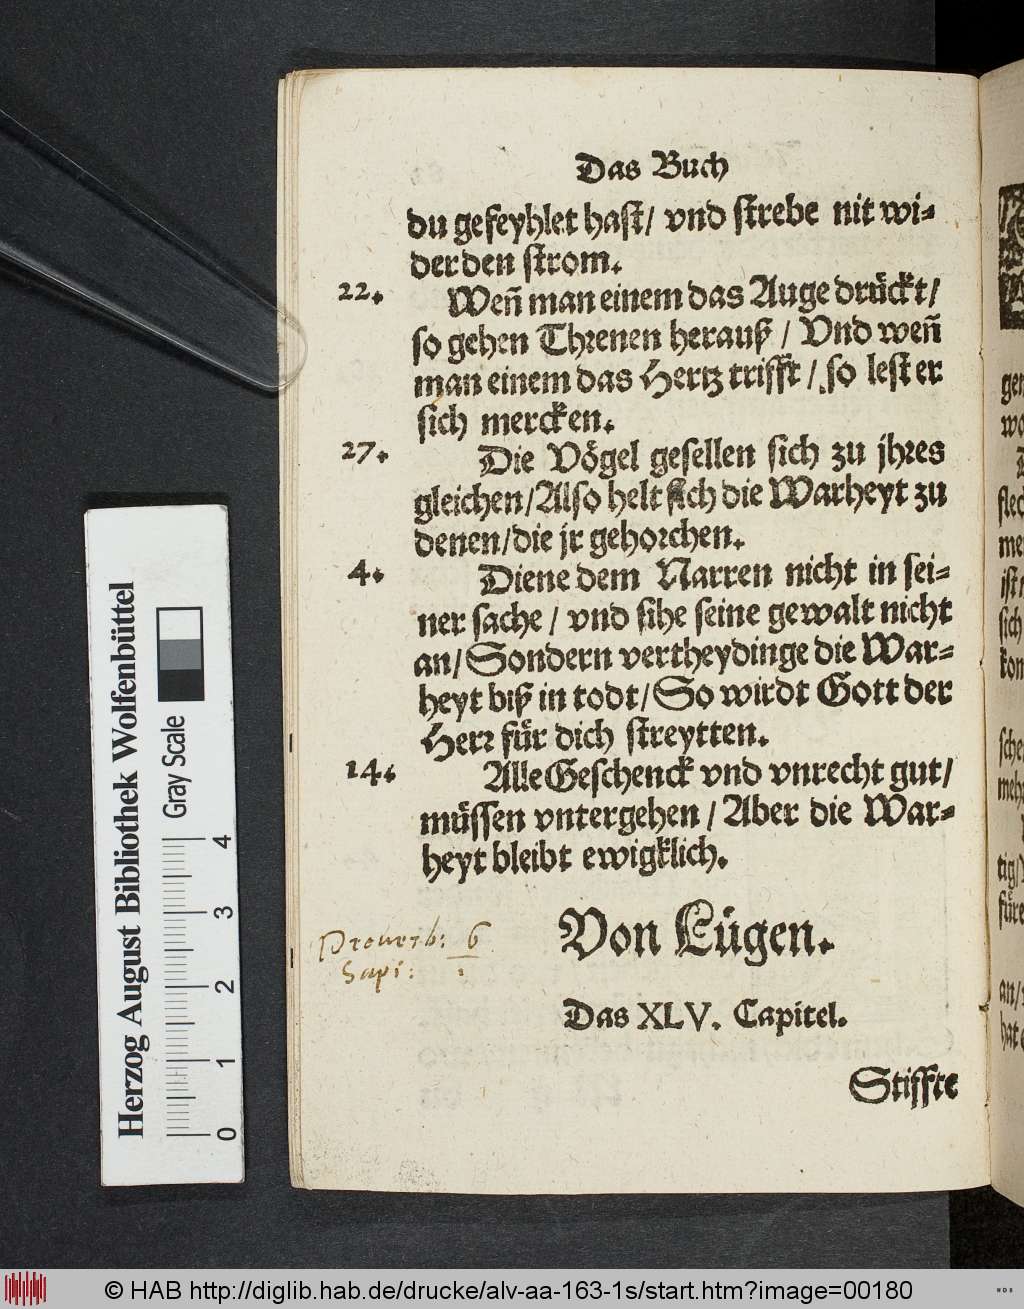 Das Buch
du gefeyhlet hast/ vnd strebe nit wi-
der den strom.
22. Weñ man einem das Auge drückt/
so gehen Threnen herauß / Vnd weñ
man einem das Hertz trifft / so lest er
sich mercken.
27. Die Vögel gesellen sich zu jhres
gleichen/Also helt sich die Warheyt zu
denen/die jr gehorchen.
4. Diene dem Narren nicht in sei-
ner sache / vnd sihe seine gewalt nicht
an/Sondern vertheydinge die War-
heyt biß in todt/So wirdt Gott der
Herr für dich streytten.
14. Alle Geschenck vnd vnrecht gut/
müssen vntergehen / Aber die War-
heyt bleibt ewigklich.
Prouerb: 6
Sapi: 1
Von Lügen.
Das XLV. Capitel.
Stiffte
Herzog August Bibliothek Wolfenbüttel
Gray Scale
0 1 2 3 4
© HAB http://diglib.hab.de/drucke/alv-aa-163-1s/start.htm?image=00180